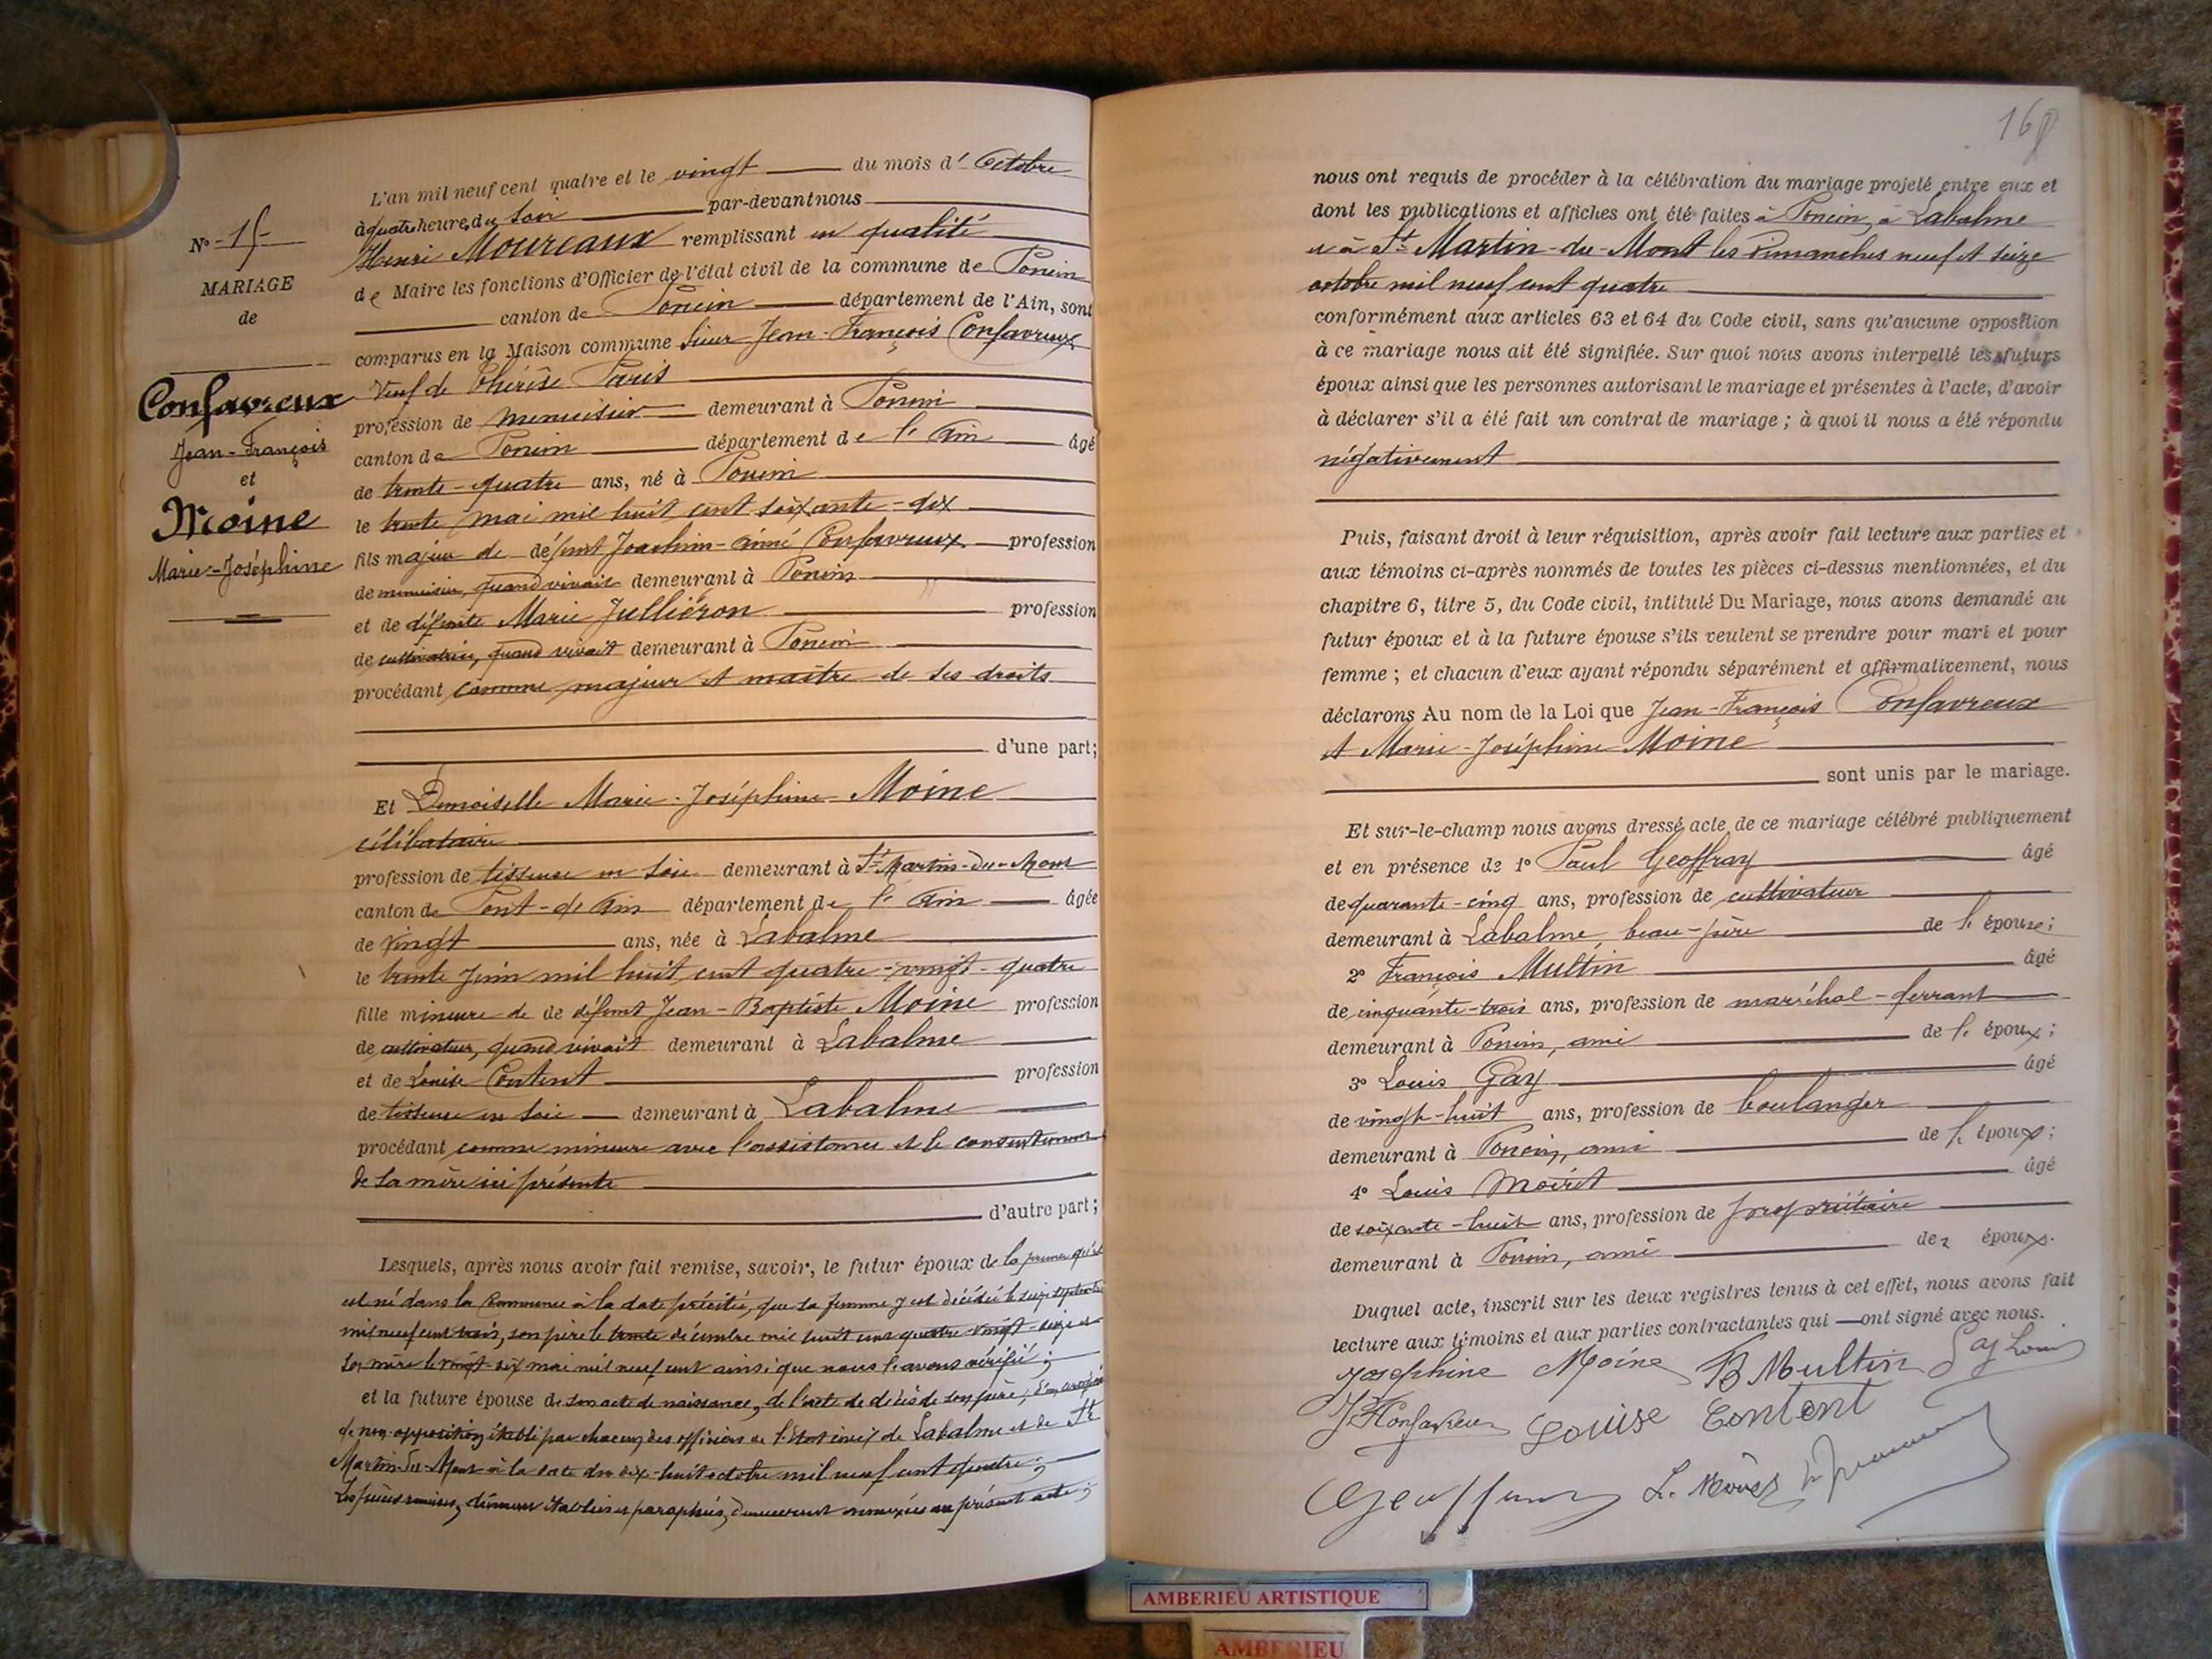 N° 15
MARIAGE
de
Confavreux
Jean-François
et
Moine
Marie-Joséphine
L'an mil neuf cent quatre et le vingt du mois d'Octobre
à quatre heures du soir par-devant nous
Henri Moureaux remplissant en qualité
de Maire les fonctions d'Officier de l'état civil de la commune de Poncin
canton de Poncin département de l'Ain, sont
comparus en la Maison commune Sieur Jean-François Confavreux
Veuf de Thérèse Paris
profession de menuisier demeurant à Poncin
canton de Poncin département de l'Ain âgé
de trente-quatre ans, né à Poncin
le trente mai mil huit cent soixante-dix
fils majeur de défunt Joachim-Aimé Confavreux profession
de menuisier, quand vivait demeurant à Poncin
et de défunte Marie Julliéron profession
de cultivatrice, quand vivait demeurant à Poncin
procédant comme majeur et maître de ses droits
d'une part;
Et Demoiselle Marie-Joséphine Moine
célibataire
profession de tisseuse en soie demeurant à St Martin-du-Mont
canton de Pont-d'Ain département de l'Ain âgée
de vingt ans, née à Labalme
le trente Juin mil huit cent quatre-vingt-quatre
fille mineure de de défunt Jean-Baptiste Moine profession
de cultivateur, quand vivait demeurant à Labalme
et de Louise Content profession
de tisseuse en soie demeurant à Labalme
procédant comme mineure avec l'assistance et le consentement
de sa mère ici présente
d'autre part;
Lesquels, après nous avoir fait remise, savoir, le futur époux de la preuve qu'il
est né dans la Commune à la date précitée, que sa femme y est décédée le septembre
mil neuf cent trois, son père le trente décembre mil huit cent quatre-vingt-seize et
sa mère le vingt-six mai mil neuf cent ainsi que nous l'avons vérifié;
et la future épouse de son acte de naissance, de l'acte de décès de son père; d'un certificat
de non opposition établi par chacun des officiers de l'Etat civil de Labalme et de St
Martin-du-Mont à la date du dix-huit octobre mil neuf cent quatre;
Les pièces remises, dûment établies et paraphées, demeureront annexées au présent acte;
168
nous ont requis de procéder à la célébration du mariage projeté entre eux et
dont les publications et affiches ont été faites à Poncin, à Labalme
et à St Martin-du-Mont les Dimanches neuf et seize
octobre mil neuf cent quatre
conformément aux articles 63 et 64 du Code civil, sans qu'aucune opposition
à ce mariage nous ait été signifiée. Sur quoi nous avons interpellé les futurs
époux ainsi que les personnes autorisant le mariage et présentes à l'acte, d'avoir
à déclarer s'il a été fait un contrat de mariage; à quoi il nous a été répondu
négativement
Puis, faisant droit à leur réquisition, après avoir fait lecture aux parties et
aux témoins ci-après nommés de toutes les pièces ci-dessus mentionnées, et du
chapitre 6, titre 5, du Code civil, intitulé Du Mariage, nous avons demandé au
futur époux et à la future épouse s'ils veulent se prendre pour mari et pour
femme; et chacun d'eux ayant répondu séparément et affirmativement, nous
déclarons Au nom de la Loi que Jean-François Confavreux
et Marie-Joséphine Moine
sont unis par le mariage.
Et sur-le-champ nous avons dressé acte de ce mariage célébré publiquement
et en présence de 1° Paul Geoffray âgé
de quarante-cinq ans, profession de cultivateur
demeurant à Labalme, beau-père de l'épouse;
2° François Multin âgé
de cinquante-trois ans, profession de maréchal-ferrant
demeurant à Poncin, ami de l'époux;
3° Louis Gay âgé
de vingt-huit ans, profession de boulanger
demeurant à Poncin, ami de l'époux;
4° Louis Moiret âgé
de soixante-huit ans, profession de propriétaire
demeurant à Poncin, ami des époux.
Duquel acte, inscrit sur les deux registres tenus à cet effet, nous avons fait
lecture aux témoins et aux parties contractantes qui ont signé avec nous.
Josephine Moine Multin Gay Louis
Confavreux Louise Content
Geoffray L. Moiret
AMBERIEU ARTISTIQUE
AMBERIEU